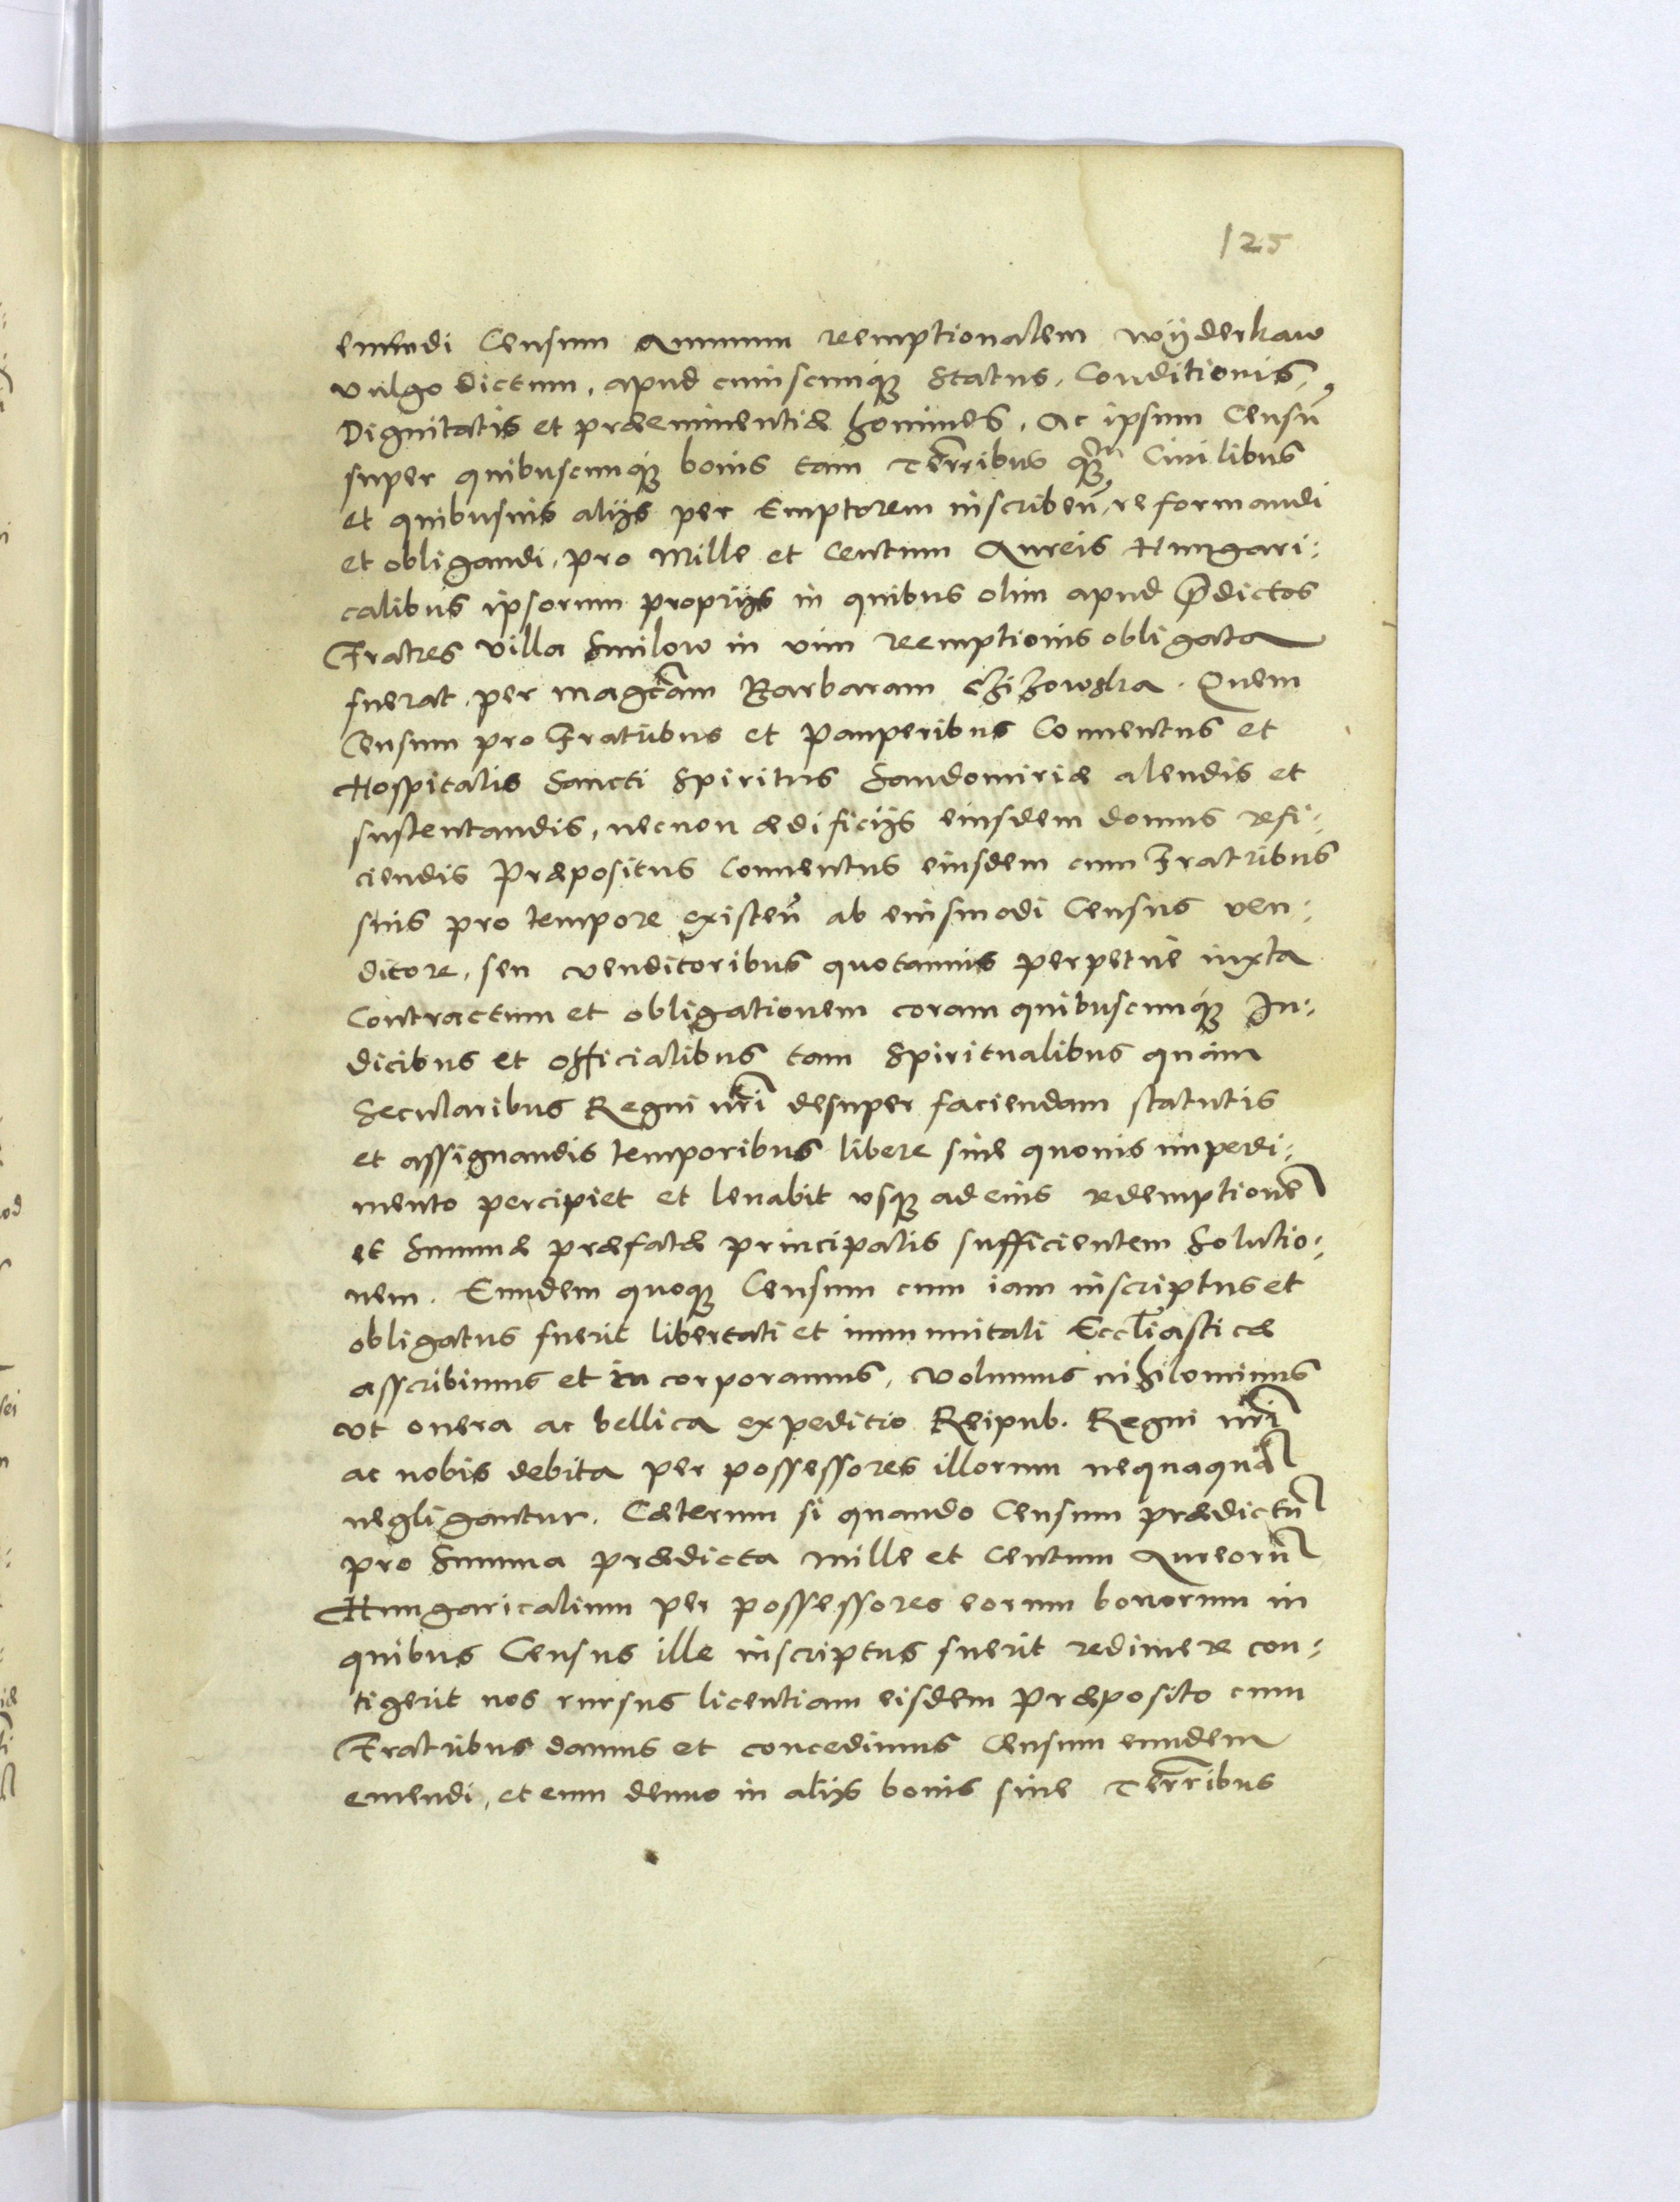 125
emendi Censum Annuum reemptionalem Wÿderkaw
vulgo dictum, apud cuiuscunq; Status, Conditionis,
Dignitatis et præeminentiæ homines. Ac ipsum Censũ
super quibuscunq; bonis tam Terr̃ribus q̃; Ciuilibus
et quibusuis alijs per Emptorem inscribeñ, reformandi
et obligandi, pro Mille et Centum Aureis Hungari:
calibus ipsorum proprijs in quibus olim apud p̃dictos
Fratres Villa Smilow in vim reemptionis obligata
fuerat, per magc̃am Barbaram Chizowska. Quem
Censum pro Fratribus et Pauperibus Conuentus et
Hospitalis Sancti Spiritus Sandomiriæ alendis et
sustentandis, necnon ædificijs eiusdem domus refi:
ciendis Præpositus Conuentus eiusdem cum Fratribus
suis pro tempore existeñ ab eiusmodi Census ven:
ditore, seu venditoribus quotannis perpetue iuxta
Contractum et obligationem coram quibuscunq; Iu:
dicibus et officialibus tam Spiritualibus quàm
Secularibus Regni nr̃i desuper faciendam statutis
et assignandis temporibus libere sine quouis impedi:
mento percipiet et leuabit vsq; ad eius redemptionẽ
et Summæ præfatæ principalis sufficientem Solutio:
nem. Eundem quoq; Censum cum iam inscriptus et
obligatus fuerit libertati et immunitati Eccl̃iasticæ
asscribimus et incorporamus, volumus nihilominus
vt onera ac bellica expeditio Reipub. Regni nr̃i
ac nobis debita per possessores illorum nequaquã
negligantur. Cæterum si quando Censum prædictũ
pro Summa prædicta mille et Centum Aureorũ
Hungaricalium per possessores eorum bonorum in
quibus Census ille inscriptus fuerit redimere con:
tigerit nos rursus licentiam eisdem Præposito cum
Fratribus damus et concedimus Censum eundem
emendi, et eum denuo in alijs bonis siue Terr̃ribus